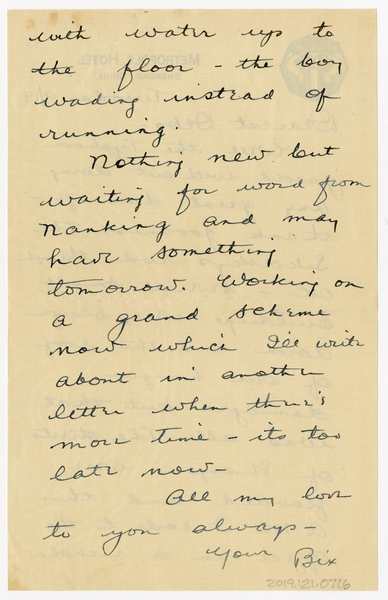 with water up to
the floor - the boy
wading instead of
running.
Nothing new but
waiting for word from
Nanking and may
have something
tomorrow. Working on
a grand scheme
now which I'll write
about in another
letter when there's
more time - its too
late now -
All my love
to you always -
Your Bix
2019.121.0716